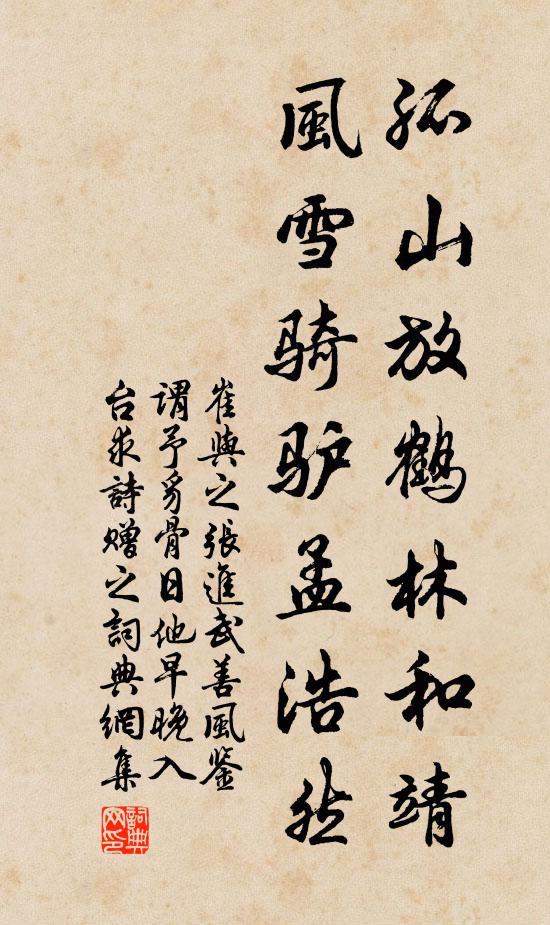 孤山放鶴林和靖
風雪骑驴孟浩然
崔與之張進武善風鉴
謂予豸骨日他早晚入
台求詩贈之詞典網集
詞典网印